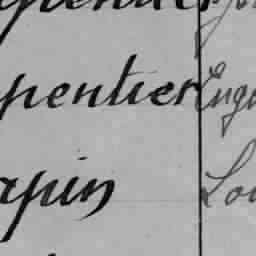 pentier Eug
apin Lou